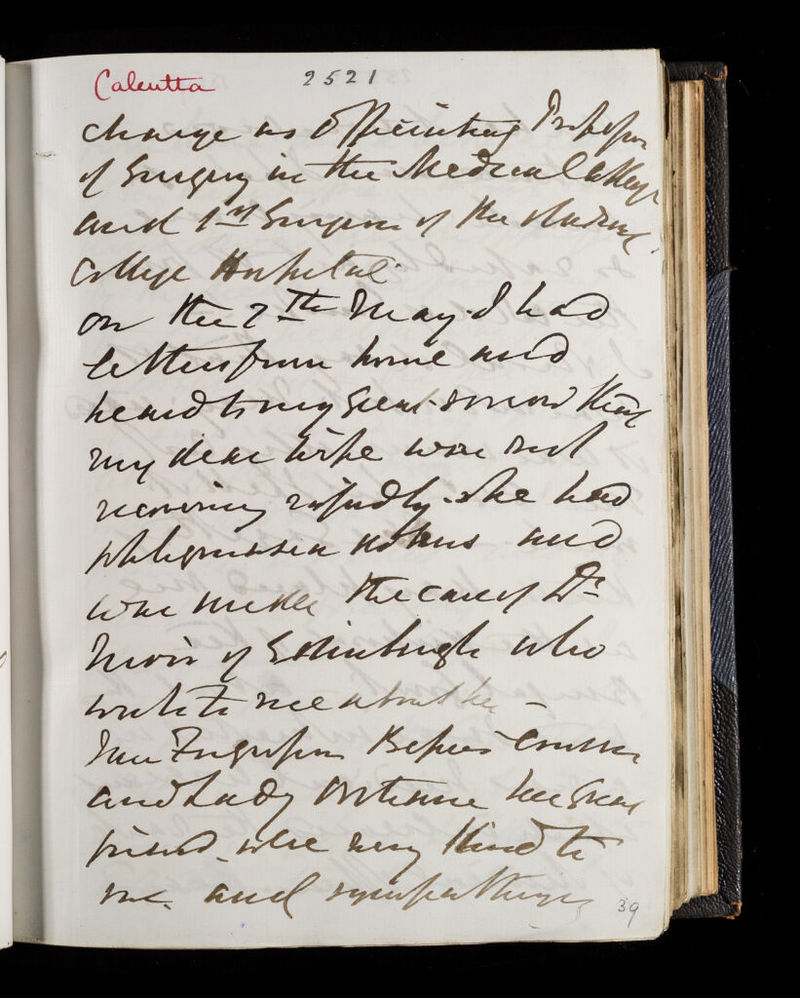 Calcutta 2521
charge as Officiating Professor
of Surgery in the Medical College
and 1st Surgeon of the Medical
College Hospital
on the 7th May I had
letters from home and
heard to my great sorrow that
my dear wife was not
recovering rapidly - she had
phlegmasia dolens and
was under the care of Dr
Moir of Edinburgh who
wrote to me about her -
and Lady Outram her great
friend were very kind to
me. and sympathized
39